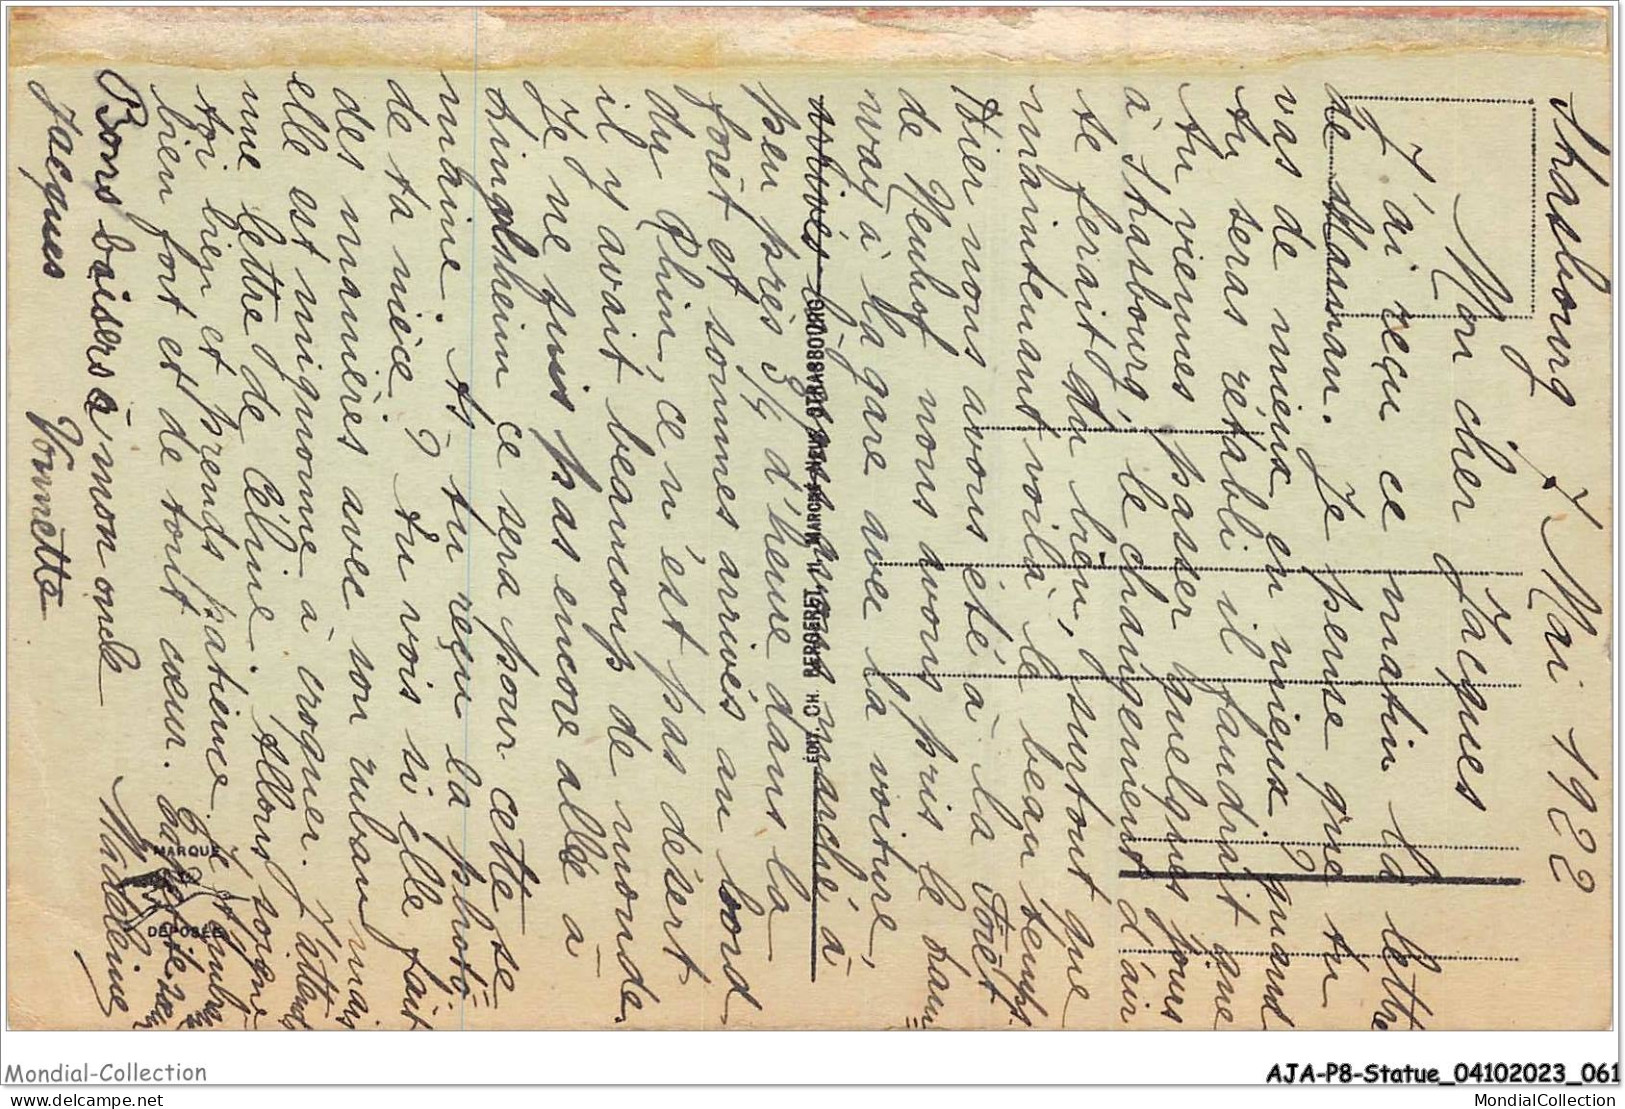 Strasbourg 7 Mai 1922
Mon cher Jacques
J'ai reçu ce matin la lettre
de Maman. Je pense que tu
vas de mieux en mieux quand
tu seras rétabli il faudrait que
tu viennes passer quelques jours
à Strasbourg, le changement d'air
te ferait du bien, surtout que
maintenant voilà le beau temps.
Hier nous avons été à la Forêt
de Neuhof nous avons pris le tram=
way à la gare avec la voiture,
arrivés là nous avons marché à
peu près 3/4 d'heure dans la
forêt et sommes arrivés au bord
du Rhin, ce n'est pas désert
il y avait beaucoup de monde.
Je ne suis pas encore allée à
ce sera pour cette se=
maine. As-tu reçu la photo
de ta nièce? tu vois si elle fait
des manières avec son ruban mais
elle est mignonne à croquer. J'attends
une lettre de Céline. Allons soigne
toi bien et prends patience. Je t'embrasse
bien fort et de tout cœur.
Madeleine
Bons baisers à mon oncle
Jacques Yonnette
ÉDIT. CH. BERGERET, 11, MARCHÉ-NEUF, STRASBOURG
MARQUE
DÉPOSÉE
Mondial-Collection
AJA-P8-Statue_04102023_061
delcampe.net
MondialCollection